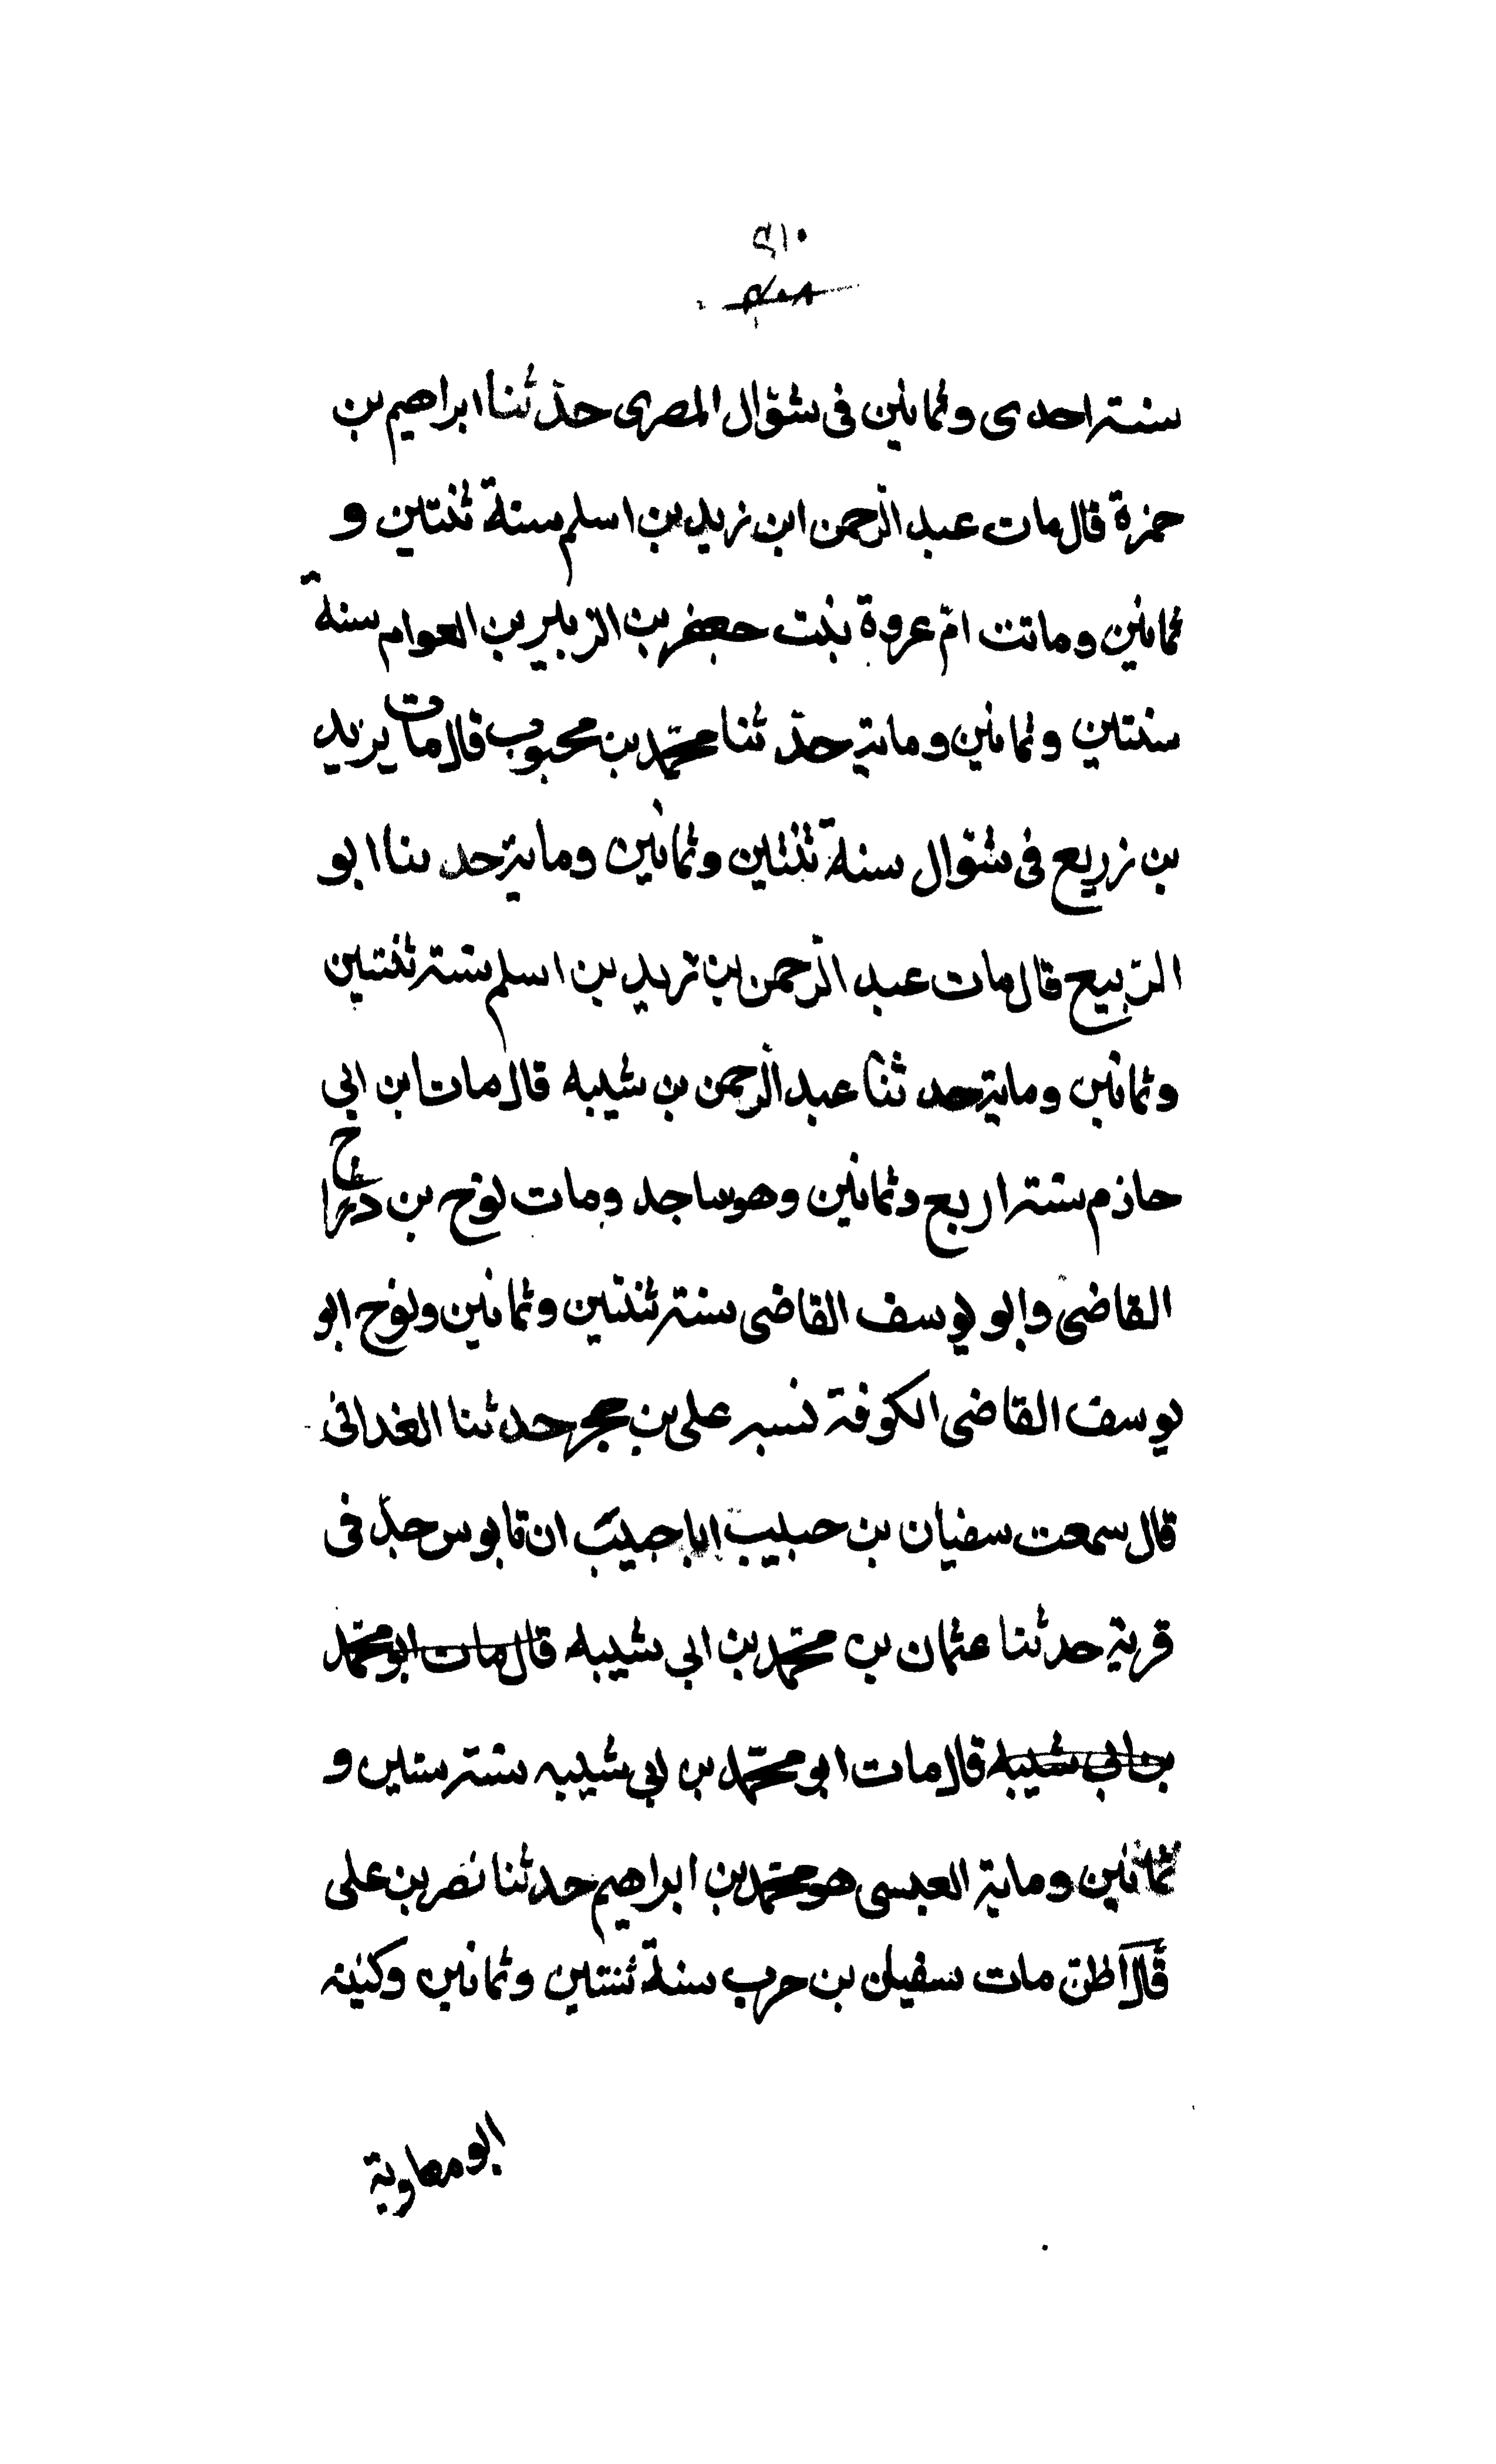 ٢١٠
٢٠٨
سنة احدى وثمانين فى شوّال المصرى حدّثنا ابراهيم بن
حمزة قال مات عبد الرّحمن ابن زيد بن اسلم سنة ثنتين و
ثمانين وماتت امّ عروة بنت جعفر بن الزبير بن العوام سنة
سنتين وثمانين وماية حدّثنا محمّد بن محبوب قال مات يزيد
بن زريع فى شوّال سنة ثنتين وثمانين وماية حدىنا ابو
الرّبيع قال مات عبد الرّحمن بن زيد بن اسلم سنة ثنتين
وثمانين وماية حدثنا عبد الرّحمن بن شيبه قال مات ابن ابى
حازم سنة اربع وثمانين وهو ساجد ومات نوح بن درّاج
القاضى وابو يوسف القاضى سنة ثنتين وثمانين ونوح ابو
يوسف القاضى الكوفة نسبه على بن حجر حدثنا الغدانى
قال سمعت سفيان بن حبيب ابا حبيب ان قابوس حدّ فى
قرية حدثنا عثمان بن محمّد بن ابى شيبه قال مات ابو محمّد
بن ابى شيبه قال مات ابو محمّد بن ابى شيبه سنة سنتين و
ثمانين وماية العبسى هو محمّد بن ابراهيم حدثنا نصر بن على
قال اظنّ مات سفين بن حرب سنة ثنتين وثمانين وكنيته
ابو معاوية